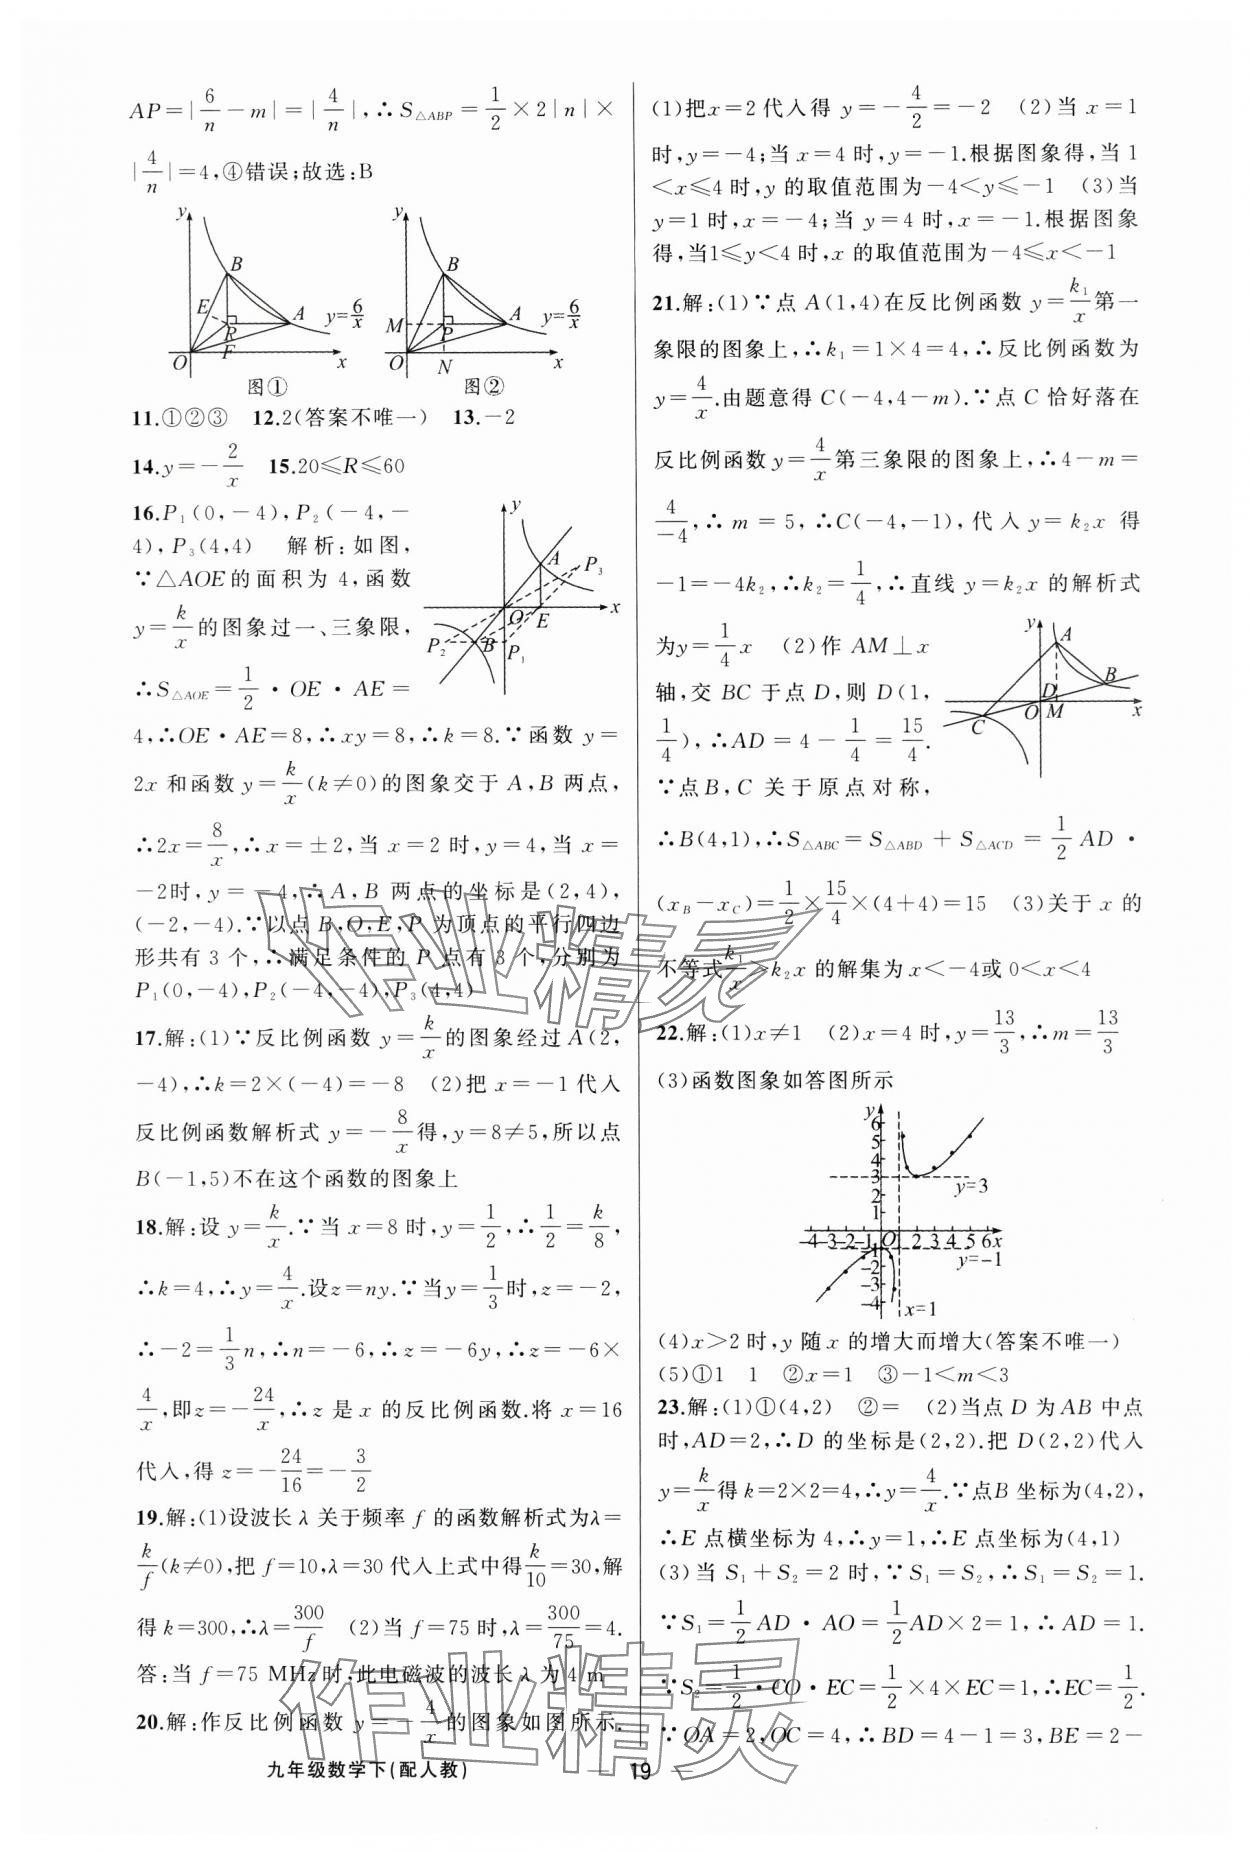 AP=|6/n-m|=|4/n|,∴S△ABP=1/2×2|n|×
|4/n|=4,④错误;故选:B
y B E P A y=6/x O F x 图①
y B M P A y=6/x O N x 图②
11.①②③ 12.2(答案不唯一) 13.-2
14.y=-2/x 15.20≤R≤60
16.P₁(0,-4),P₂(-4,-
4),P₃(4,4) 解析:如图,
∵△AOE的面积为4,函数
y=k/x的图象过一、三象限,
∴S△AOE=1/2·OE·AE=
y A P₃ O E x P₂ B P₁
4,∴OE·AE=8,∴xy=8,∴k=8.∵函数y=
2x和函数y=k/x(k≠0)的图象交于A,B两点,
∴2x=8/x,∴x=±2,当x=2时,y=4,当x=
-2时,y=-4,∴A,B两点的坐标是(2,4),
(-2,-4).∵以点B,O,E,P为顶点的平行四边
形共有3个,∴满足条件的P点有3个,分别为
P₁(0,-4),P₂(-4,-4),P₃(4,4)
17.解:(1)∵反比例函数y=k/x的图象经过A(2,
-4),∴k=2×(-4)=-8 (2)把x=-1代入
反比例函数解析式y=-8/x得,y=8≠5,所以点
B(-1,5)不在这个函数的图象上
18.解:设y=k/x.∵当x=8时,y=1/2,∴1/2=k/8,
∴k=4,∴y=4/x.设z=ny.∵当y=1/3时,z=-2,
∴-2=1/3n,∴n=-6,∴z=-6y,∴z=-6×
4/x,即z=-24/x,∴z是x的反比例函数.将x=16
代入,得z=-24/16=-3/2
19.解:(1)设波长λ关于频率f的函数解析式为λ=
k/f(k≠0),把f=10,λ=30代入上式中得k/10=30,解
得k=300,∴λ=300/f (2)当f=75时,λ=300/75=4.
答:当f=75 MHz时,此电磁波的波长λ为4 m
20.解:作反比例函数y=-4/x的图象如图所示.
(1)把x=2代入得y=-4/2=-2 (2)当x=1
时,y=-4;当x=4时,y=-1.根据图象得,当1
<x≤4时,y的取值范围为-4<y≤-1 (3)当
y=1时,x=-4;当y=4时,x=-1.根据图象
得,当1≤y<4时,x的取值范围为-4≤x<-1
21.解:(1)∵点A(1,4)在反比例函数y=k₁/x第一
象限的图象上,∴k₁=1×4=4,∴反比例函数为
y=4/x.由题意得C(-4,4-m).∵点C恰好落在
反比例函数y=4/x第三象限的图象上,∴4-m=
4/-4,∴m=5,∴C(-4,-1),代入y=k₂x得
-1=-4k₂,∴k₂=1/4,∴直线y=k₂x的解析式
为y=1/4x (2)作AM⊥x
轴,交BC于点D,则D(1,
1/4),∴AD=4-1/4=15/4.
∵点B,C关于原点对称,
y A B D O M C x
∴B(4,1),∴S△ABC=S△ABD+S△ACD=1/2AD·
(xB-xC)=1/2×15/4×(4+4)=15 (3)关于x的
不等式k₁/x>k₂x的解集为x<-4或0<x<4
22.解:(1)x≠1 (2)x=4时,y=13/3,∴m=13/3
(3)函数图象如答图所示
y 6 5 4 3 2 1 y=3
-4-3-2-1 O 1 2 3 4 5 6x
-1 -2 -3 -4 y=-1 x=1
(4)x>2时,y随x的增大而增大(答案不唯一)
(5)①1 1 ②x=1 ③-1<m<3
23.解:(1)①(4,2) ②= (2)当点D为AB中点
时,AD=2,∴D的坐标是(2,2).把D(2,2)代入
y=k/x得k=2×2=4,∴y=4/x.∵点B坐标为(4,2),
∴E点横坐标为4,∴y=1,∴E点坐标为(4,1)
(3)当S₁+S₂=2时,∵S₁=S₂,∴S₁=S₂=1.
∵S₁=1/2AD·AO=1/2AD×2=1,∴AD=1.
∵S₂=1/2·CO·EC=1/2×4×EC=1,∴EC=1/2.
∵OA=2,OC=4,∴BD=4-1=3,BE=2-
九年级数学下(配人教)
— 19 —
作业精灵
作业精灵